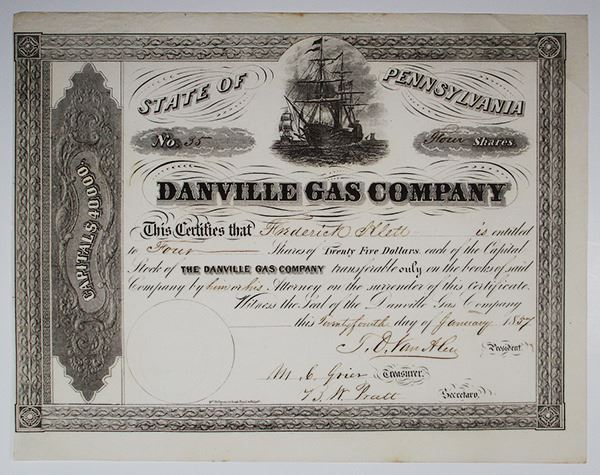 STATE OF PENNSYLVANIA
No. 35
Four Shares
DANVILLE GAS COMPANY
CAPITAL $40000.
This Certifies that Frederick Klott is entitled
to Four Shares of Twenty Five Dollars, each of the Capital
Stock of THE DANVILLE GAS COMPANY transferable only on the books of said
Company by him or his Attorney on the surrender of this Certificate.
Witness the Seal of the Danville Gas Company
this Twenty fourth day of January 1857
President
M. C. Grier Treasurer.
Pratt
Secretary.